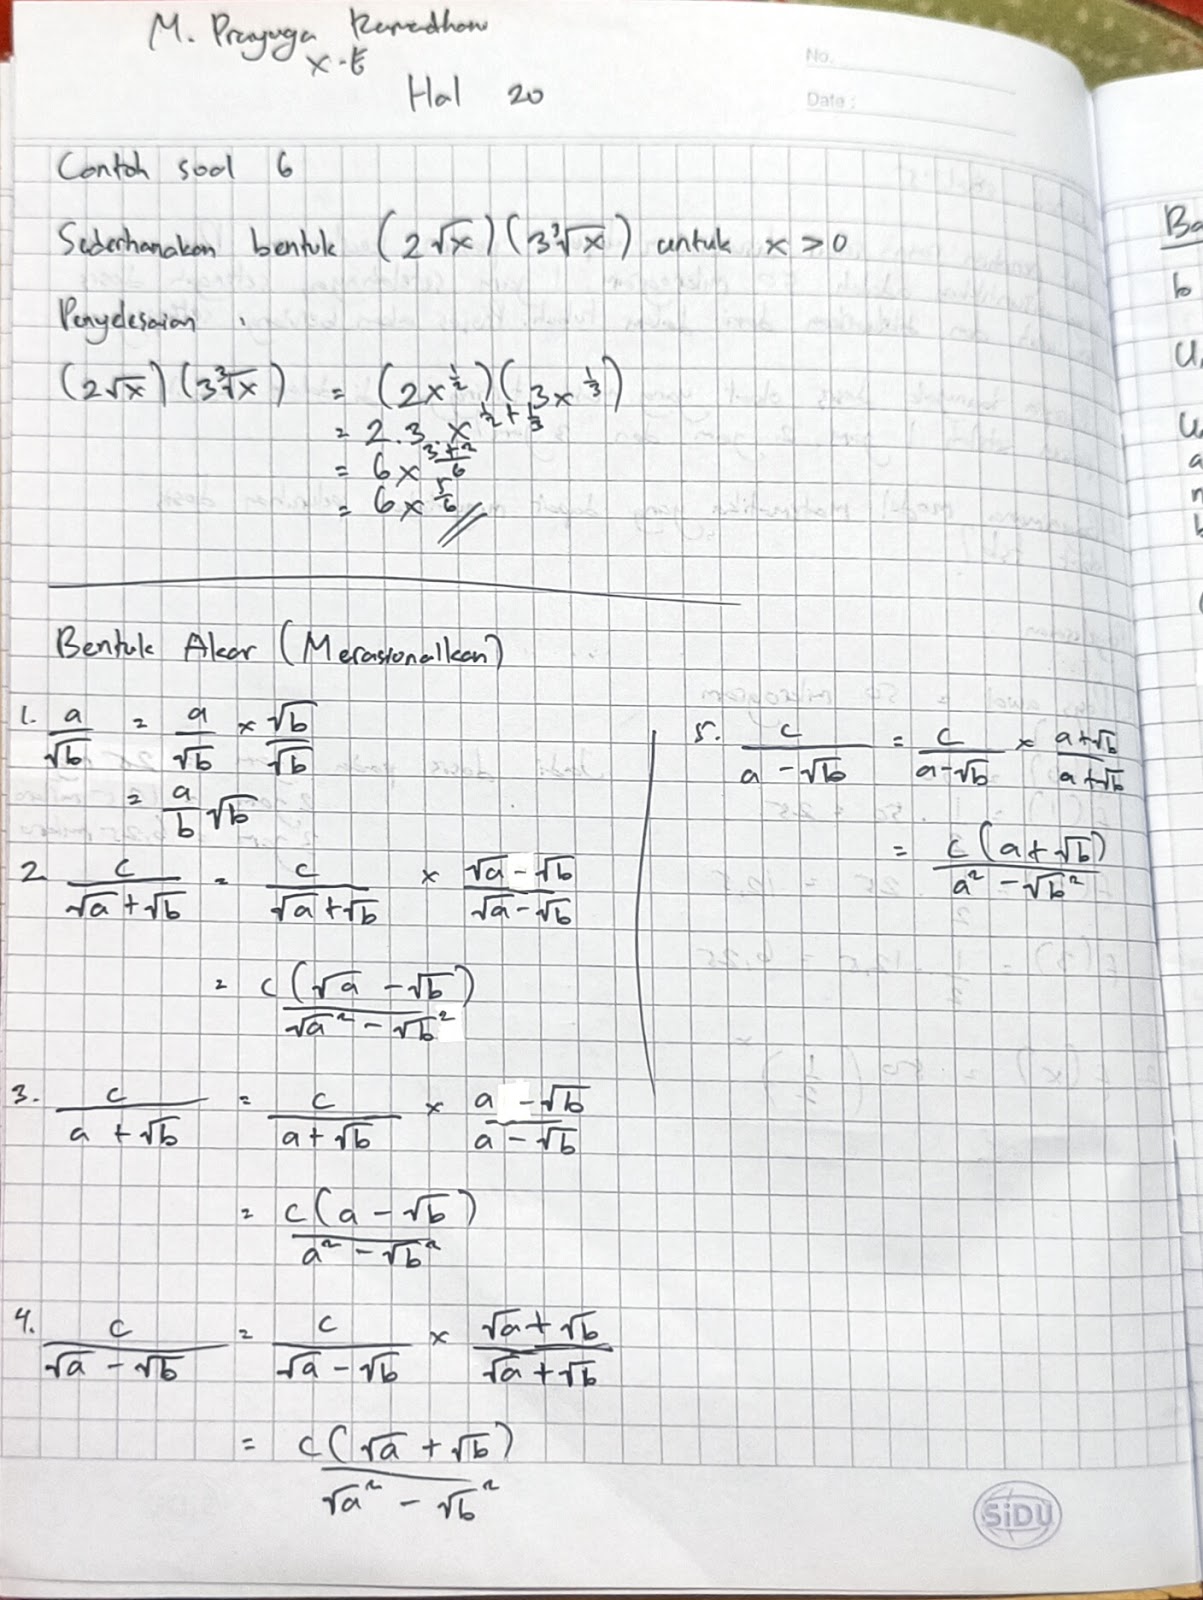 M. Prayuga Ramadhan
X-E
Hal 20
No.
Date :
Contoh soal 6
Sederhanakan bentuk (2√x)(3∛x) untuk x > 0
Penyelesaian :
(2√x)(3∛x) = (2x^(1/2))(3x^(1/3))
= 2.3.x^(1/2 + 1/3)
= 6x^((3+2)/6)
= 6x^(5/6) //
Bentuk Akar (Merasionalkan)
1. a/√b = a/√b × √b/√b
= a/b √b
2. c/(√a + √b) = c/(√a + √b) × (√a - √b)/(√a - √b)
= c(√a - √b)/(√a² - √b²)
3. c/(a + √b) = c/(a + √b) × (a - √b)/(a - √b)
= c(a - √b)/(a² - √b²)
4. c/(√a - √b) = c/(√a - √b) × (√a + √b)/(√a + √b)
= c(√a + √b)/(√a² - √b²)
5. c/(a - √b) = c/(a - √b) × (a + √b)/(a + √b)
= c(a + √b)/(a² - √b²)
SiDU
Ba
b
U
U
a
n
b